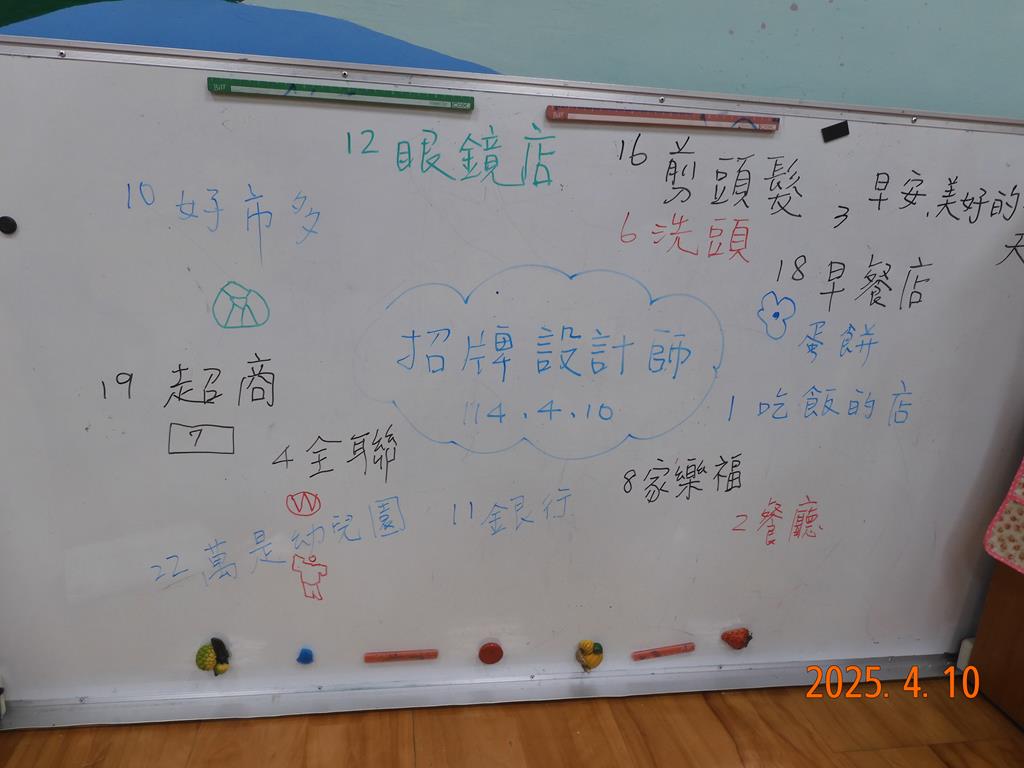 12 眼鏡店
16 剪頭髮
10 好市多
6 洗頭
3 早安,美好的
天
18 早餐店
蛋餅
招牌設計師
114.4.10
19 超商
7
1 吃飯的店
4 全聯
8 家樂福
11 銀行
2 餐廳
22 萬是幼兒園
2025. 4. 10